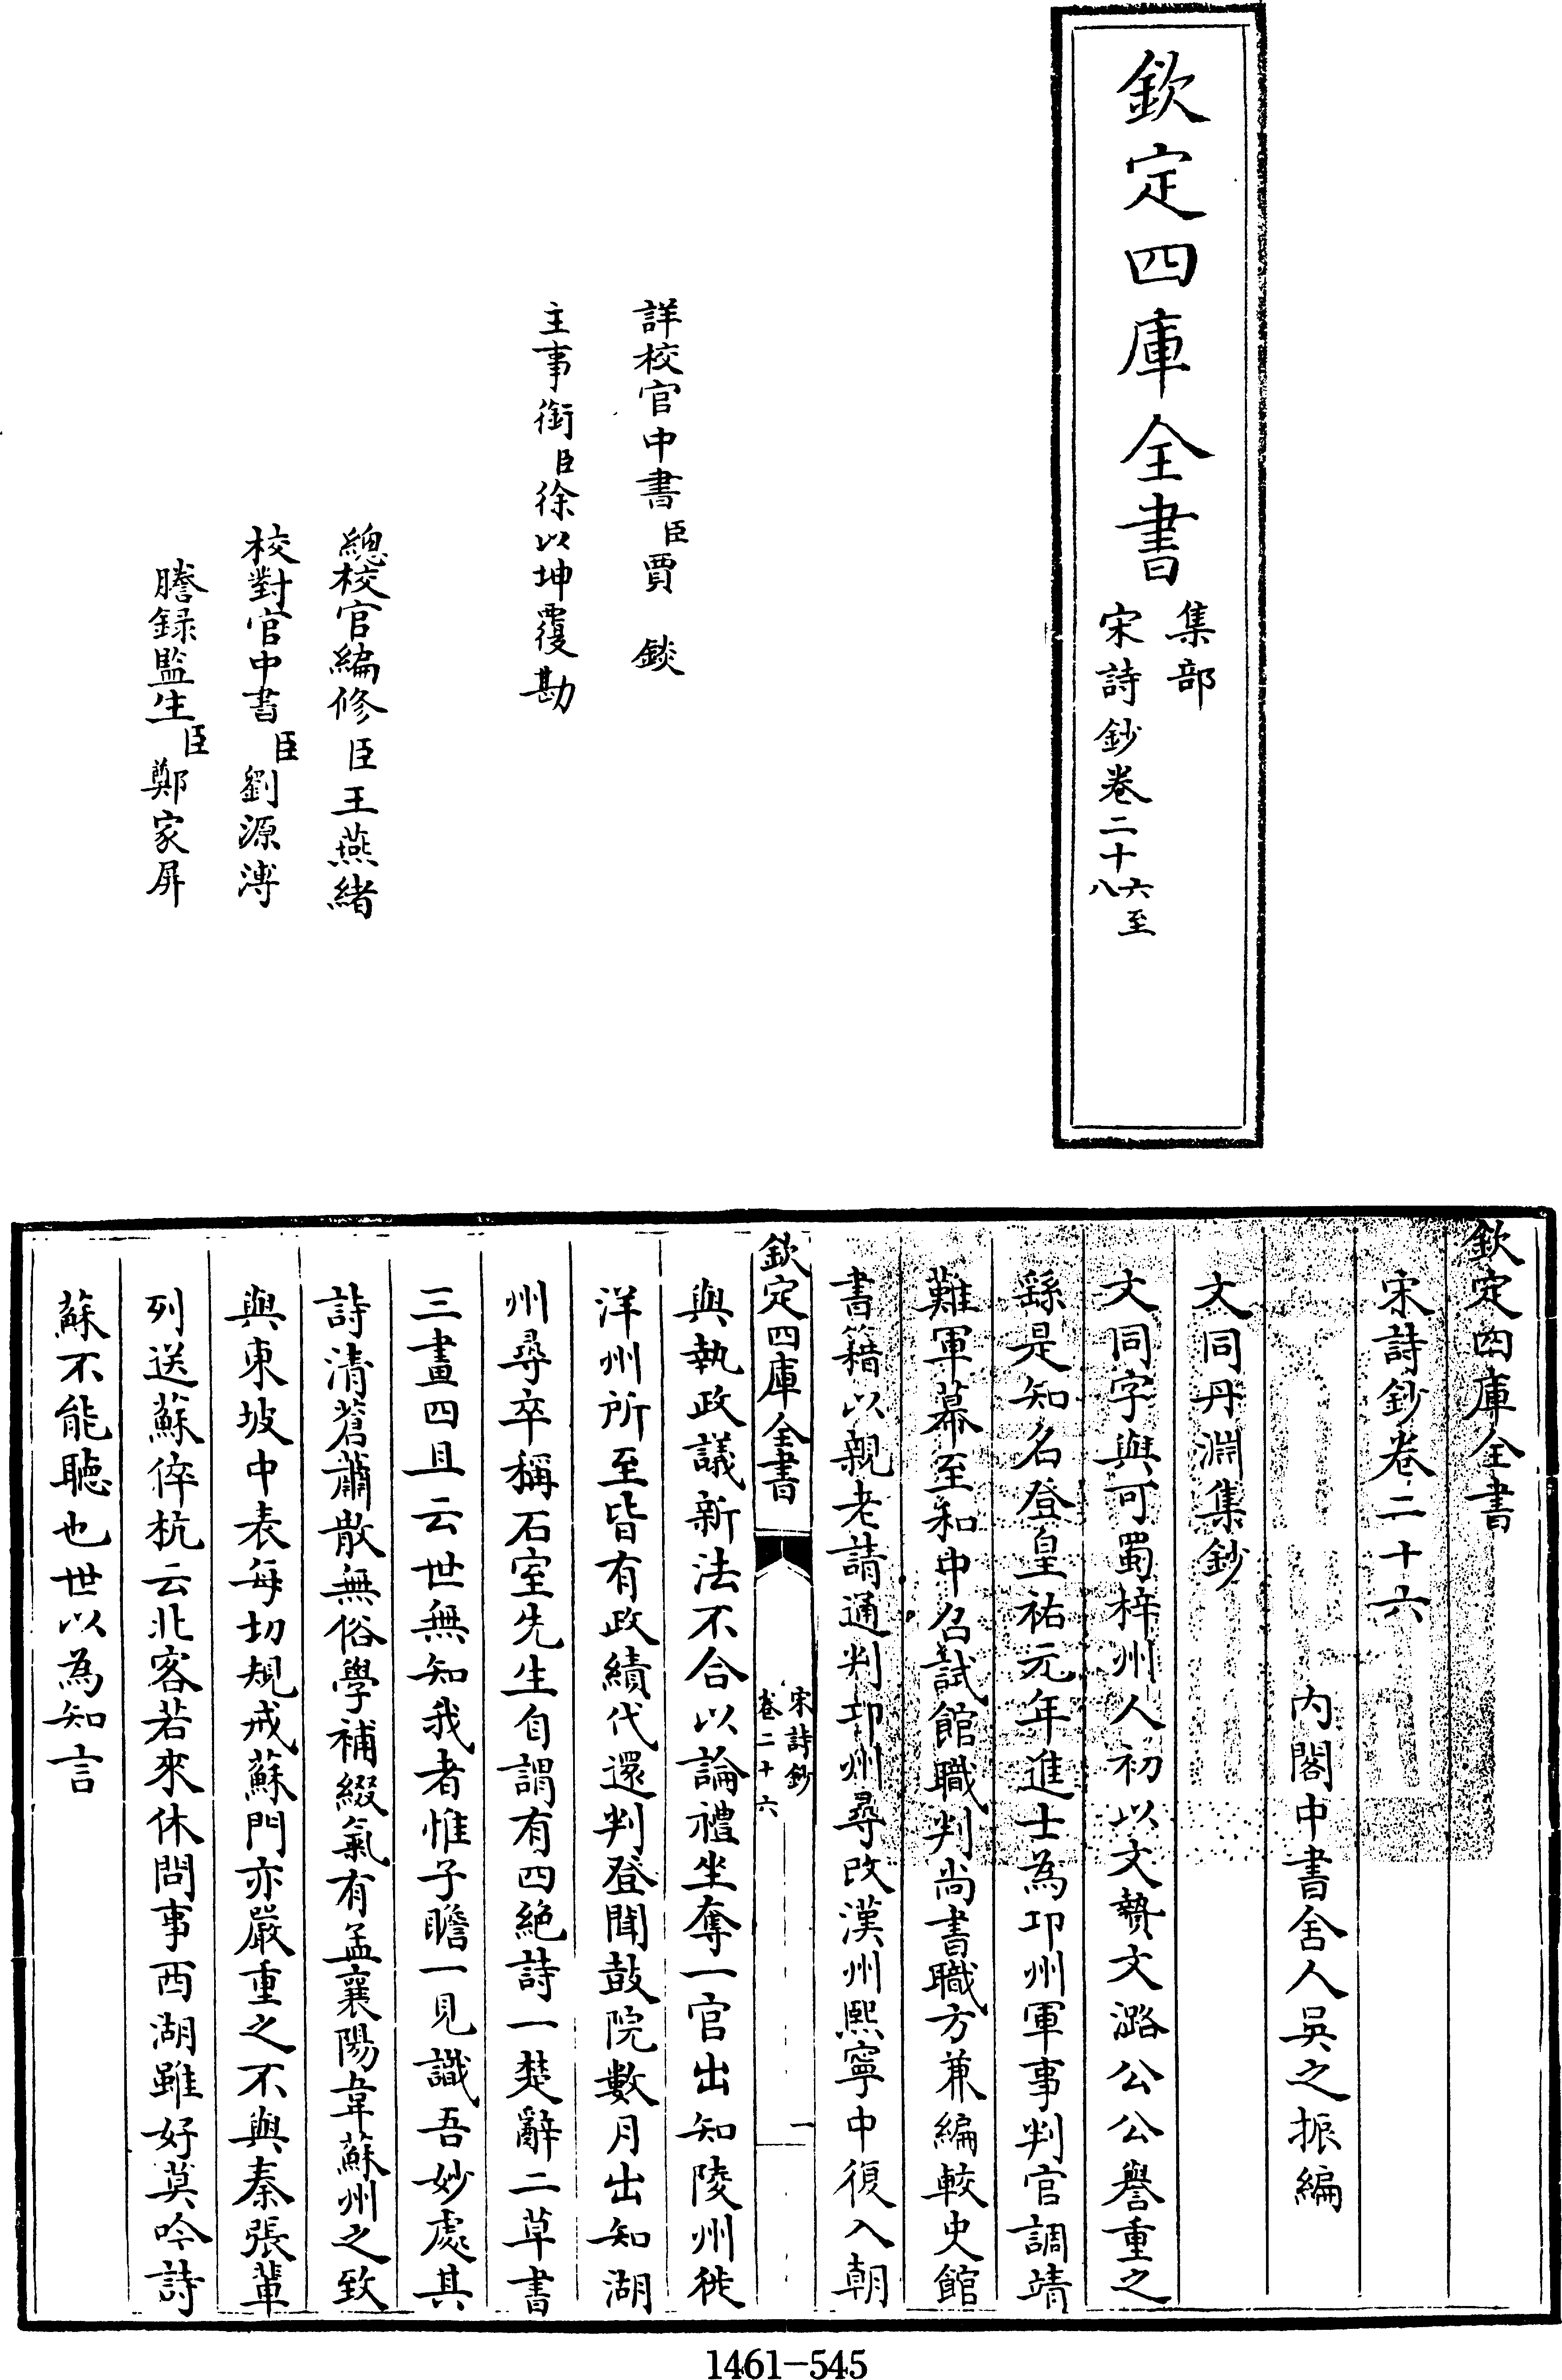 欽定四庫全書
集部
宋詩鈔卷二十六至
八
詳校官中書臣賈錟
主事銜臣徐以坤覆勘
總校官編修臣王燕緒
校對官中書臣劉源溥
謄錄監生臣鄭家屏
欽定四庫全書
宋詩鈔卷二十六
內閣中書舍人吳之振編
文同丹淵集鈔
文同字與可蜀梓州人初以文贄文潞公公譽重之
繇是知名登皇祐元年進士為邛州軍事判官調靖
難軍幕至和中召試館職判尚書職方兼編較史館
書籍以親老請通判邛州尋改漢州熙寧中復入朝
欽定四庫全書
宋詩鈔
卷二十六
一
與執政議新法不合以論禮坐奪一官出知陵州徙
洋州所至皆有政績代還判登聞鼓院數月出知湖
州尋卒稱石室先生自謂有四絕詩一楚辭二草書
三畫四且云世無知我者惟子瞻一見識吾妙處其
詩清蒼蕭散無俗學補綴氣有孟襄陽韋蘇州之致
與東坡中表每切規戒蘇門亦嚴重之不與秦張輩
列送蘇倅杭云北客若來休問事西湖雖好莫吟詩
蘇不能聽也世以為知言
1461-545